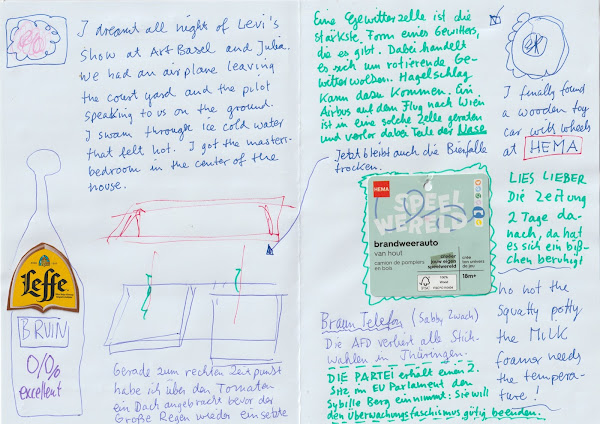 I dreamt all night of Levi's
Show at Art Basel and Julia.
We had an airplane leaving
the court yard and the pilot
speaking to us on the ground.
I swam through ice cold water
that felt hot. I got the master-
bedroom in the center of the
house.
Leffe
BRUIN
0/0%
excellent
Gerade zum rechten Zeitpunkt
habe ich über den Tomaten
ein Dach angebracht bevor der
Große Regen wieder einsetzte
Eine Gewitterzelle ist die
stärkste Form eines Gewitters,
die es gibt. Dabei handelt
es sich um rotierende Ge-
witterwolken. Hagelschlag
kann dazu kommen. Ein
Airbus auf dem Flug nach Wien
ist in eine solche Zelle geraten
und verlor dabei Teile der Nase
Jetzt bleibt auch die Bierfalle
trocken.
HEMA
SPEEL
WERELD
brandweerauto
van hout
camion de pompiers
en bois
creëer
jouw eigen
speelwereld
crée
ton univers
de jeu
FSC
100%
18m+
Braun Telefon (Sabby Zwach)
Die AFD verliert alle Stich-
wahlen in Thüringen.
DIE PARTEI erhält einen 2.
Sitz im EU Parlament den
Sybille Berg einnimmt: Sie will
den Überwachungsfaschismus gütig beenden.
I finally found
a wooden toy
car with wheels
at HEMA
LIES LIEBER
Die Zeitung
2 Tage da-
nach, da hat
es sich ein biß-
chen beruhigt
no not the
Squatty potty
the MILK
foamer needs
the tempera-
ture!